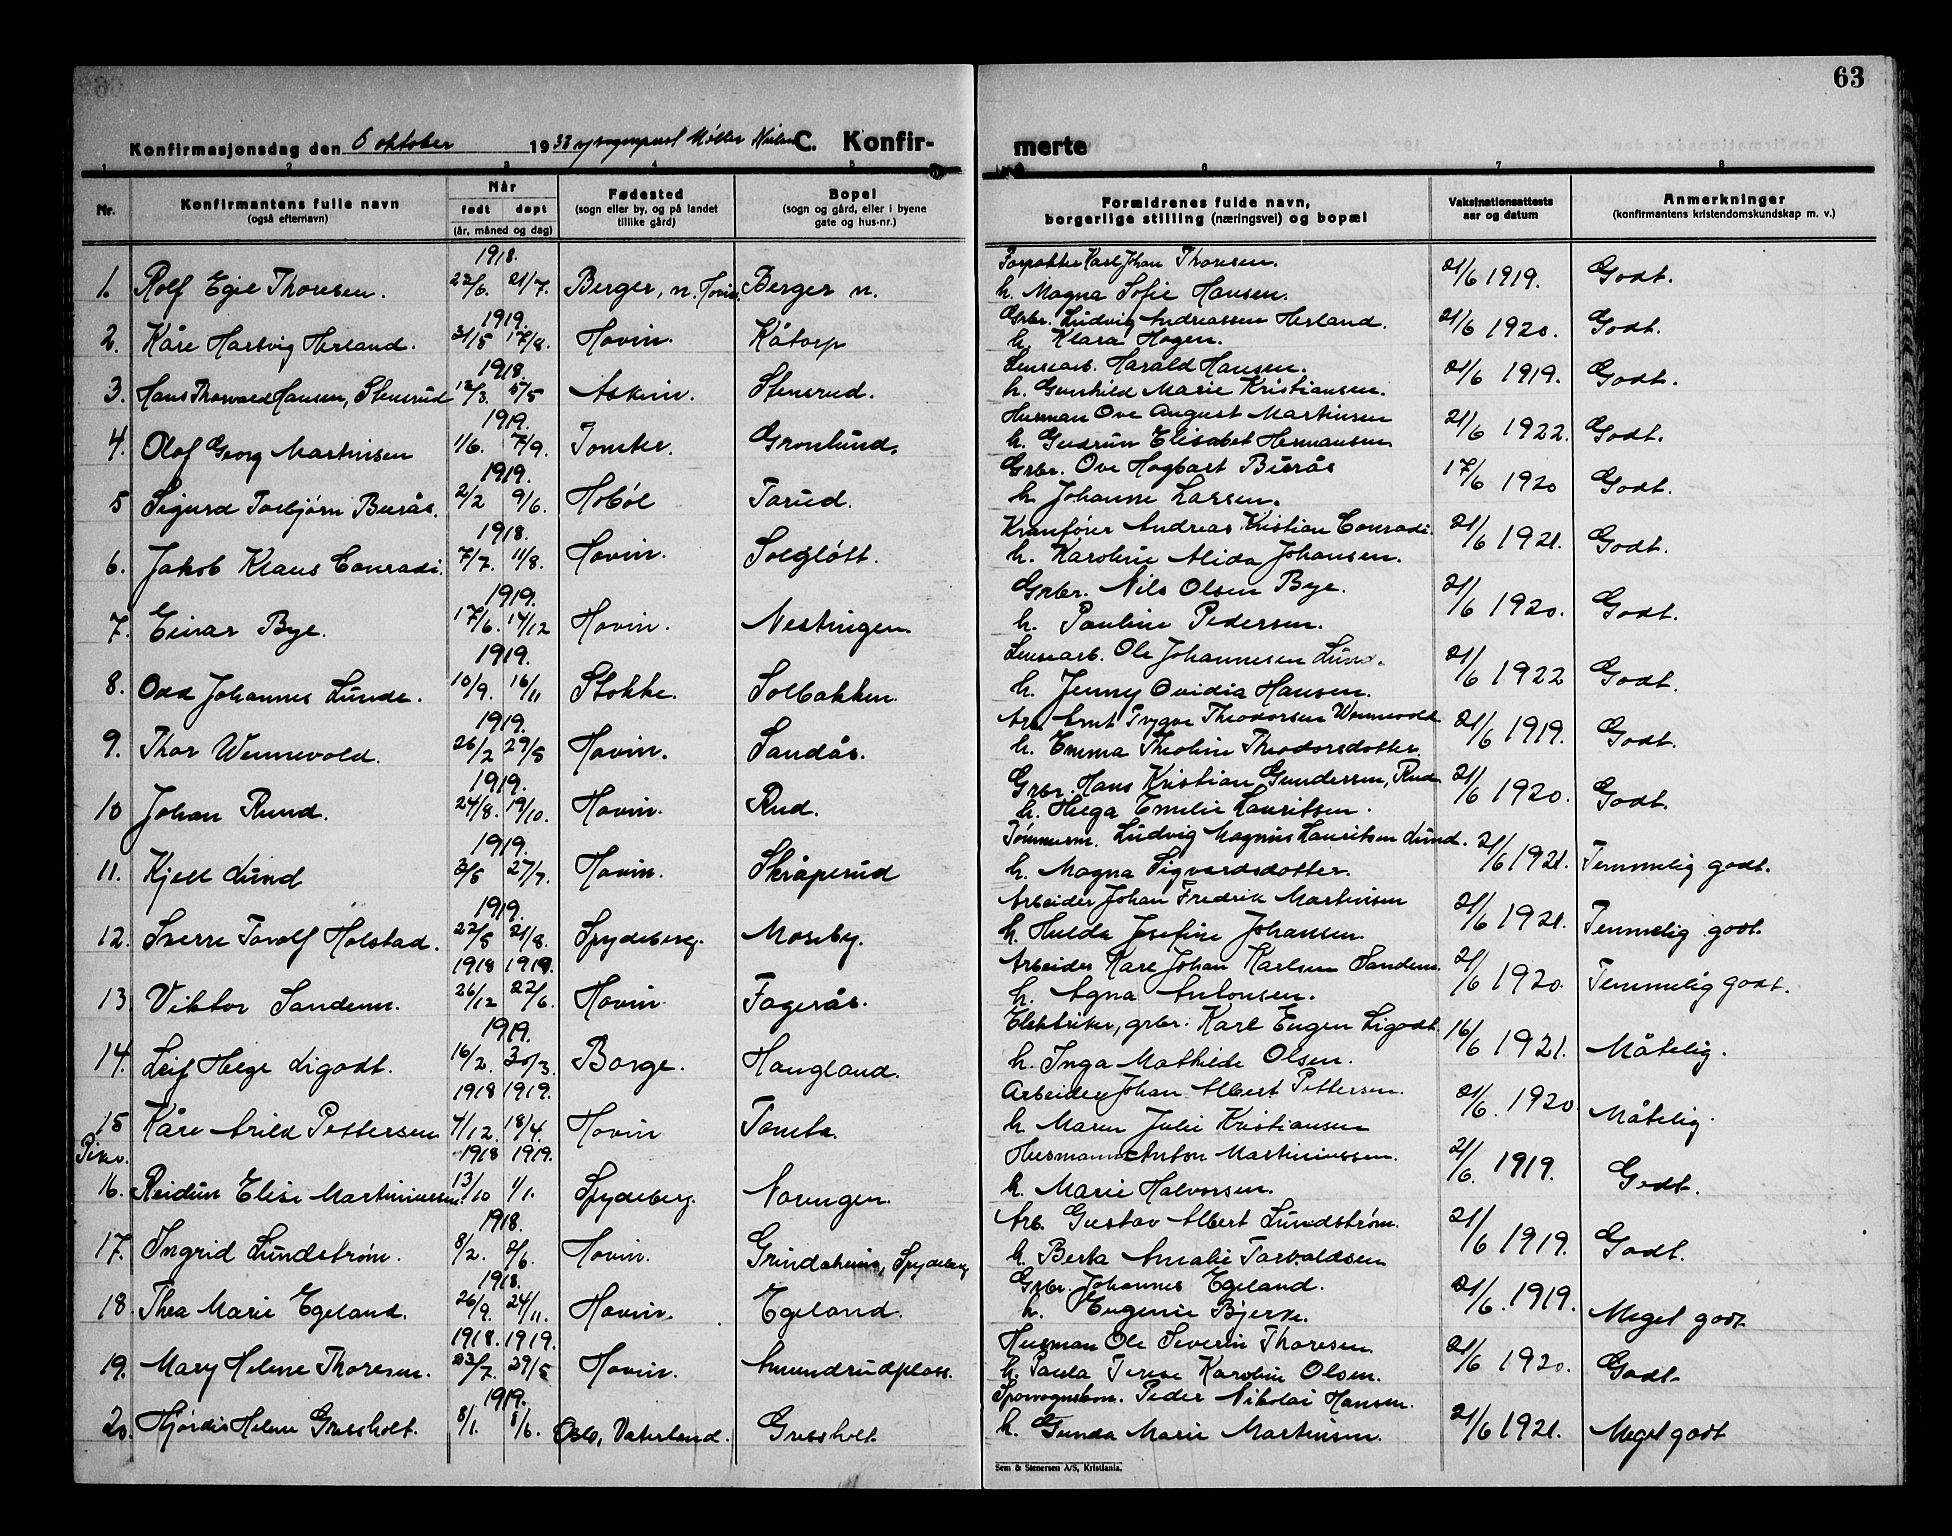 63
Konfirmasjonsdag den 8 oktober 1933 C. Konfir-
merte
1 2 3 4 5
6 7 8
Nr. Konfirmantens fulle navn (også efternavn) Når født døpt (år, måned og dag) Fødested (sogn eller by, og på landet tillike gård) Bopel (sogn og gård, eller i byene gate og hus-nr.)
Forældrenes fulde navn, borgerlige stilling (næringsvei) og bopæl Vaksinationsattests aar og datum Anmerkninger (konfirmantens kristendomskundskap m. v.)
1918.
1. Rolf Egil Thoresen. 22/6. 21/7. Berger, n. Hovin. Berger n.
Forpakter Karl Johan Thoresen.
h. Magna Sofie Hansen. 21/6 1919. Godt.
1919.
2. Kåre Hartvig Herland. 31/5 17/8. Hovin. Kåtorp
Grbr. Ludvig Andreassen Herland.
h. Klara Hogen. 21/6 1920. Godt.
1918.
3. Hans Thorvald Hansen, Stensrud 12/3. 5/5 Askim. Stensrud.
Lensearb. Harald Hansen.
h. Gunhild Marie Kristiansen. 21/6 1919. Godt.
1919.
4. Olaf Georg Martinsen 1/6. 7/9. Tomter. Gronlund.
Husman Ove August Martinsen
h. Gudrun Elisabet Hermansen 21/6 1922. Godt.
1919.
5 Sigurd Torbjørn Buerås. 2/2 9/6. Hobøl Tarud.
Grbr. Ove Hagbart Buerås
h. Johanne Larsen. 17/6 1920 Godt.
1918.
6. Jakob Klaus Conradi. 7/7. 11/8. Hovin. Solgløtt.
Kranfører Andreas Kristian Conradi.
h. Karoline Alida Johansen. 21/6 1921. Godt.
1919.
7. Einar Bye. 17/6. 14/12 Hovin. Nestingen.
Grbr. Nils Olsen Bye.
h. Pauline Pedersen. 21/6 1920. Godt.
1919.
8. Odd Johannes Lunde. 10/9. 16/11 Stokke. Solbakken.
Lensearb. Ole Johannesen Lund.
h. Jenny Ovidia Hansen. 21/6 1922 Godt.
1919.
9. Thor Wennevold. 26/2 29/5 Hovin. Sandås.
Arb. Arnt Trygve Theodorsen Wennevold
h. Emma Theoline Theodorsdotter. 21/6 1919. Godt.
1919.
10 Johan Ruud. 24/8. 19/10. Hovin. Rud.
Grbr. Hans Kristian Gundersen, Rud
h. Helga Emilie Lauritsen. 21/6 1920. Godt.
1919.
11. Kjell Lund 3/5 27/7. Hovin. Skråperud
Tømmerm. Ludvig Magnus Lauritsen Lund.
h. Magna Sigvardsdotter. 21/6 1921. Temmelig godt.
1919.
12. Sverre Torolf Holstad. 22/5 21/8. Spydeberg. Mosby.
Arbeider Johan Fredrik Martinsen
h. Hulda Josefine Johansen. 21/6 1921. Temmelig godt.
1918 1919.
13. Viktor Sandem. 26/12 22/6. Hovin. Fagerås.
Arbeider Karl Johan Karlsen Sandem.
h. Agna Antonsen. 21/6 1920. Temmelig godt.
1919.
14. Leif Helge Ligodt. 16/2. 30/3. Borge. Haugland.
Elektriker, grbr. Karl Eugen Ligodt.
h. Inga Mathilde Olsen. 16/6 1921. Måtelig.
1918 1919.
15 Kåre Arild Pettersen 4/12. 18/4. Hovin Tomta.
Arbeider Johan Albert Pettersen.
h Maren Julie Kristiansen 21/6. 1920. Måtelig.
Piker. 1918 1919.
16. Reidun Elise Martiniussen. 13/10 1/1. Spydeberg. Navingen.
Husmann Anton Martiniussen.
h. Marie Halvorsen. 21/6. 1919. Godt.
1918.
17. Ingrid Lundstrøm. 8/2. 2/6. Hovin. Grindaheim, Spydeberg
Arb. Gustav Albert Lundstrøm.
h. Berta Amalie Torvaldsen 21/6 1919. Godt.
1918.
18. Thea Marie Egeland. 26/9. 24/11. Hovin. Egeland.
Grbr. Johannes Egeland.
h. Eugenie Bjerke. 21/6. 1919. Meget godt
1918. 1919.
19. Mary Helene Thoresen. 23/7. 29/5 Hovin. Amundrudplass.
Husman Ole Severin Thoresen
h. Paula Terese Karoline Olsen. 21/6 1920. Godt.
1919.
20. Hjørdis Helene Gressholt. 8/1. 8/6. Oslo, Vaterland. Gressholt
Sporvognskon. Peder Nikolai Hansen.
h. Gunda Marie Martinsen. 21/6 1921. Meget godt
Sem & Stenersen A/S, Kristiania.